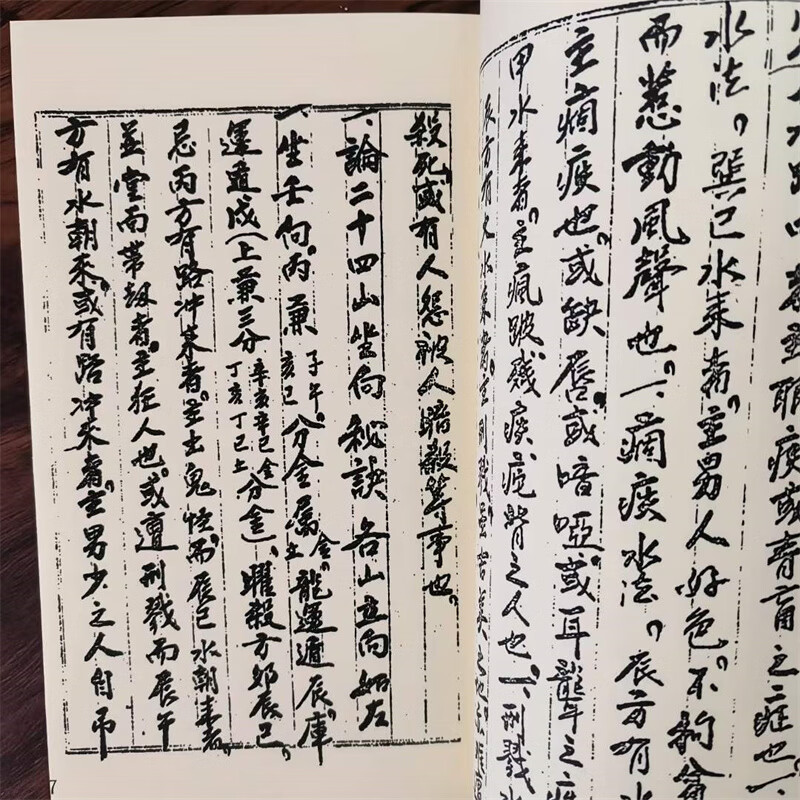 疾或青盲之症也。一、
水法。巽巳水來者，主男人好色。不拘翁
而惹動風聲也。一、痼疾水法。辰方有
主痼疾也。或缺唇或喑啞。或耳聾之症
甲水來者。主瘋跛殘疾疙背之人也。一、刑戮水
辰方有水來者主刑戮
殺死。或有人怨被人暗殺等事也。
一、論二十四山坐向秘訣各山立向如左
一、坐壬向丙兼子午。亥巳分金屬金。土龍運遁辰。庫
運遁戌（上兼三分辛亥辛巳金丁亥丁巳土分金）、曜殺方卯辰巳。
忌丙方有路冲來者。主出鬼怪。而辰巳水朝來者。
並堂而帶劫者。主狂人也。或遭刑戮而辰午
方有水朝來。或有路冲來者。主男少之人自吊
7